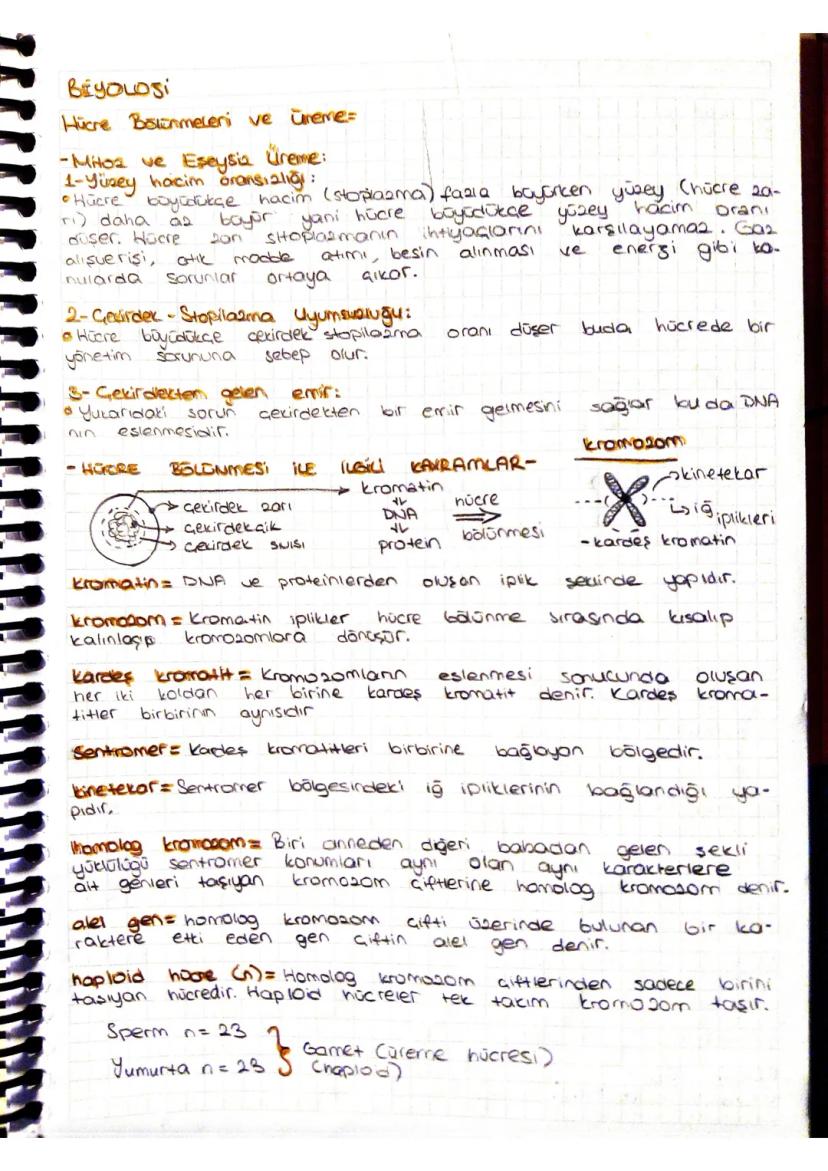 BİYOLOJİ
Hücre Bölünmeleri ve Üreme=
-Mitoz ve Eşeysiz Üreme:
1-Yüzey hacim oransızlığı:
• Hücre büyüdükçe hacim (stoplazma) fazla büyürken yüzey (hücre za-
rı) daha az büyür yani hücre büyüdükçe yüzey hacim oranı
düşer. Hücre zarı sitoplazmanın ihtiyaçlarını karşılayamaz. Gaz
alışverişi, atık madde atımı, besin alınması ve energi gibi ko-
nularda sorunlar ortaya çıkar.
2- Çekirdek - Stopilazma Uyumsuzluğu:
• Hücre büyüdükçe çekirdek stopilazma oranı düşer buda hücrede bir
yönetim sorununa sebep olur.
3- Çekirdekten gelen emir:
• Yukarıdaki sorun çekirdekten bir emir gelmesini sağlar bu da DNA
nın eşlenmesidir.
- HÜCRE BÖLÜNMESİ İLE İLGİLİ KAVRAMLAR-
kromozom
çekirdek zarı
çekirdekçik
çekirdek sıvısı
kromatin
DNA
protein
hücre
bölünmesi
kinetekor
iğ
iplikleri
- kardeş kromatin
kromatin= DNA ve proteinlerden oluşan iplik şeklinde yapıdır.
kromozom= Kromatin iplikler hücre bölünme sırasında kısalıp
kalınlaşıp kromozomlara dönüşür.
kardeş kromatit= Kromozomların eşlenmesi sonucunda oluşan
her iki koldan her birine kardeş kromatit denir. Kardeş kroma-
titler birbirinin aynısıdır
Sentromer= Kardeş kromatitleri birbirine bağlayan bölgedir.
kinetekor= Sentromer bölgesindeki iğ ipliklerinin bağlandığı ya-
pıdır.
homolog kromozom= Biri anneden diğeri babadan gelen şekli
yüklülüğü sentromer konumları aynı olan aynı karakterlere
ait genleri taşıyan kromozom çiftlerine homolog kromozom denir.
alel gen= homolog kromozom çifti üzerinde bulunan bir ka-
raktere etki eden gen çiftin alel gen denir.
haploid hücre (n)= Homolog kromozom çiftlerinden sadece birini
taşıyan hücredir. Haploid hücreler tek takım kromozom taşır.
Sperm n= 23
Yumurta n= 23
Gamet (üreme hücresi)
(haploid)